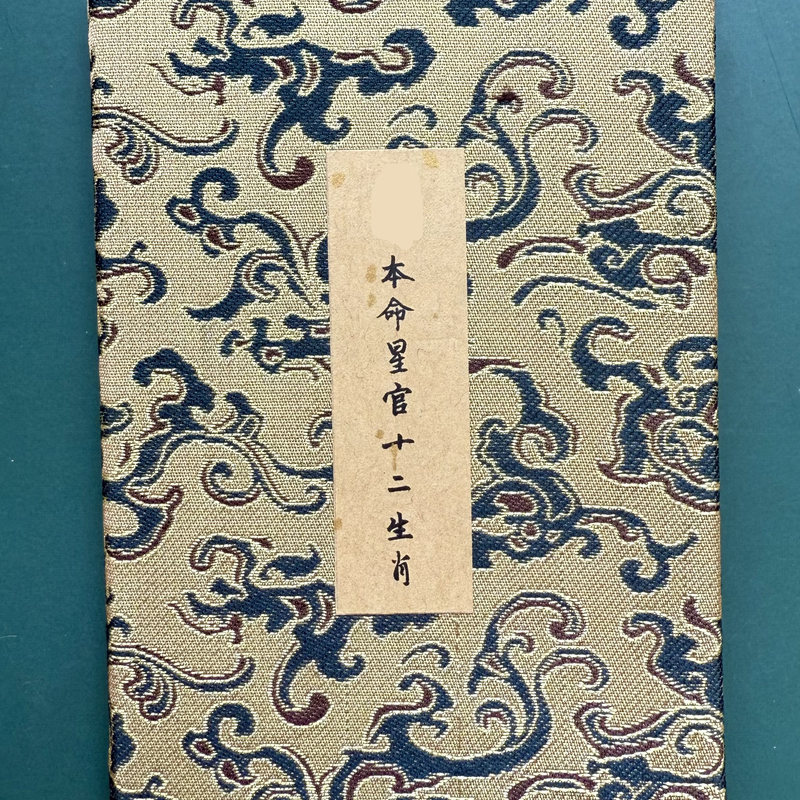 本命星官十二生肖